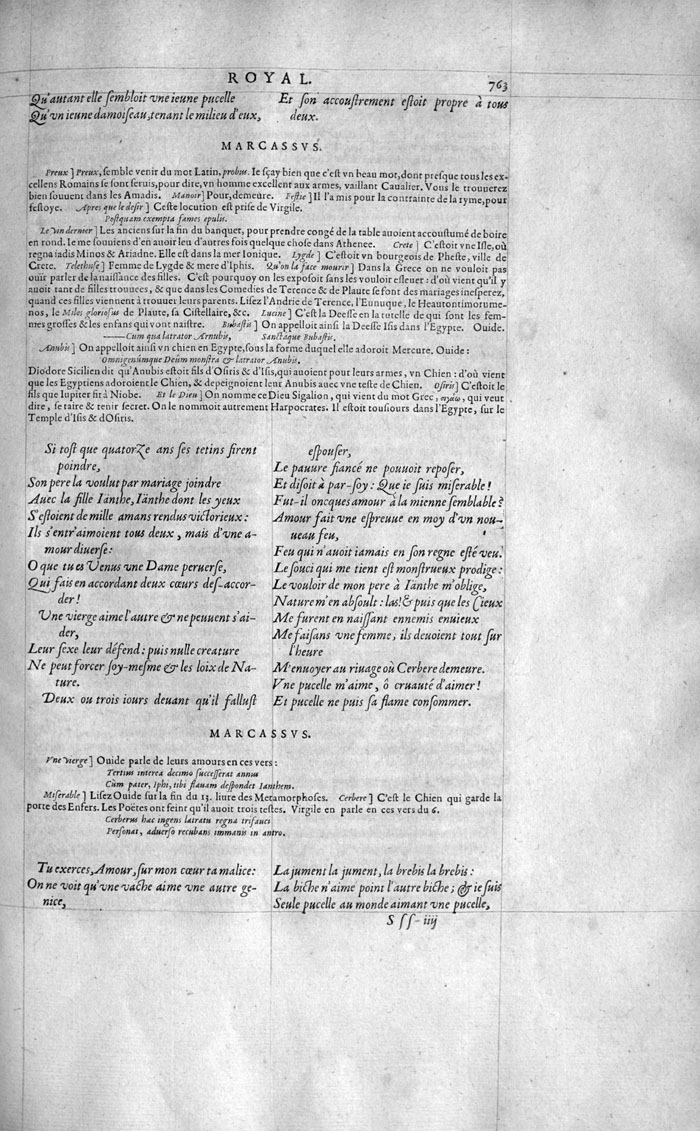 ROYAL.
763
Qu'autant elle sembloit vne ieune pucelle
Qu'vn ieune damoiseau, tenant le milieu d'eux,
Et son accoustrement estoit propre à tous
deux.
MARCASSVS.
Preux ] Preux, semble venir du mot Latin, probus. Ie sçay bien que c'est vn beau mot, dont presque tous les ex-
cellens Romains se sont seruis, pour dire, vn homme excellent aux armes, vaillant Caualier. Vous le trouuerez
bien souuent dans les Amadis. Manoir] Pour, demeure. Festie] Il l'a mis pour la contrainte de la ryme, pour
festoye. Apres que le desir] Ceste locution est prise de Virgile.
Postquam exempta fames epulis.
Le vin dernier] Les anciens sur la fin du banquet, pour prendre congé de la table auoient accoustumé de boire
en rond. Ie me souuiens d'en auoir leu d'autres fois quelque chose dans Athenee. Crete] C'estoit vne Isle, où
regna iadis Minos & Ariadne. Elle est dans la mer Ionique. Lygde] C'estoit vn bourgeois de Pheste, ville de
Crete. Telethuse] Femme de Lygde & mere d'Iphis. Qu'on la face mourir] Dans la Grece on ne vouloit pas
ouïr parler de la naissance des filles. C'est pourquoy on les exposoit sans les vouloir esleuer : d'où vient qu'il y
auoit tant de filles trouuees, & que dans les Comedies de Terence & de Plaute se font des mariages inesperez,
quand ces filles viennent à trouuer leurs parents. Lisez l'Andrie de Terence, l'Eunuque, le Heautontimorume-
nos, le Miles gloriosus de Plaute, sa Cistellaire, &c. Lucine] C'est la Deesse en la tutelle de qui sont les fem-
mes grosses & les enfans qui vont naistre. Bubastis] On appelloit ainsi la Deesse Isis dans l'Egypte. Ouide.
——Cum qua latrator Arnubis, Sanctaque Bubastis.
Anubis] On appelloit ainsi vn chien en Egypte, sous la forme duquel elle adoroit Mercure. Ouide :
Omnigenúmque Deûm monstra & latrator Anubis.
Diodore Sicilien dit qu'Anubis estoit fils d'Osiris & d'Isis, qui auoient pour leurs armes, vn Chien : d'où vient
que les Egyptiens adoroient le Chien, & depeignoient leur Anubis auec vne teste de Chien. Osiris] C'estoit le
fils que Iupiter fit à Niobe. Et le Dieu] On nomme ce Dieu Sigalion, qui vient du mot Grec, qui veut
dire, se taire & tenir secret. On le nommoit autrement Harpocrates. Il estoit tousiours dans l'Egypte, sur le
Temple d'Isis & d'Osiris.
Si tost que quatorze ans ses tetins firent
poindre,
Son pere la voulut par mariage joindre
Auec la fille Iänthe, Iänthe dont les yeux
S'estoient de mille amans rendus victorieux :
Ils s'entr'aimoient tous deux, mais d'vne a-
mour diuerse :
O que tu es Venus vne Dame peruerse,
Qui fais en accordant deux cœurs des-accor-
der !
Vne vierge aime l'autre & ne peuuent s'ai-
der,
Leur sexe leur défend : puis nulle creature
Ne peut forcer soy-mesme & les loix de Na-
ture.
Deux ou trois iours deuant qu'il fallust
espouser,
Le pauure fiancé ne pouuoit reposer,
Et disoit à par-soy : Que ie suis miserable !
Fut-il oncques amour à la mienne semblable ?
Amour fait vne espreuue en moy d'vn nou-
ueau feu,
Feu qui n'auoit iamais en son regne esté veu.
Le souci qui me tient est monstrueux prodige :
Le vouloir de mon pere à Iänthe m'oblige,
Nature m'en absoult : las! & puis que les Cieux
Me furent en naissant ennemis enuieux
Me faisans vne femme, ils deuoient tout sur
l'heure
M'enuoyer au riuage où Cerbere demeure.
Vne pucelle m'aime, ô cruauté d'aimer !
Et pucelle ne puis sa flame consommer.
MARCASSVS.
Vne vierge] Ouide parle de leurs amours en ces vers :
Tertius interea decimo successerat annus
Cùm pater, Iphi, tibi flauam despondet Ianthem.
Miserable] Lisez Ouide sur la fin du 13. liure des Metamorphoses. Cerbere] C'est le Chien qui garde la
porte des Enfers. Les Poëtes ont feint qu'il auoit trois testes. Virgile en parle en ces vers du 6.
Cerberus hæc ingens latratu regna trifauci
Personat, aduerso recubans immanis in antro.
Tu exerces, Amour, sur mon cœur ta malice :
On ne voit qu'vne vache aime vne autre ge-
nice,
La jument la jument, la brebis la brebis :
La biche n'aime point l'autre biche ; & ie suis
Seule pucelle au monde aimant vne pucelle,
S ss iiij